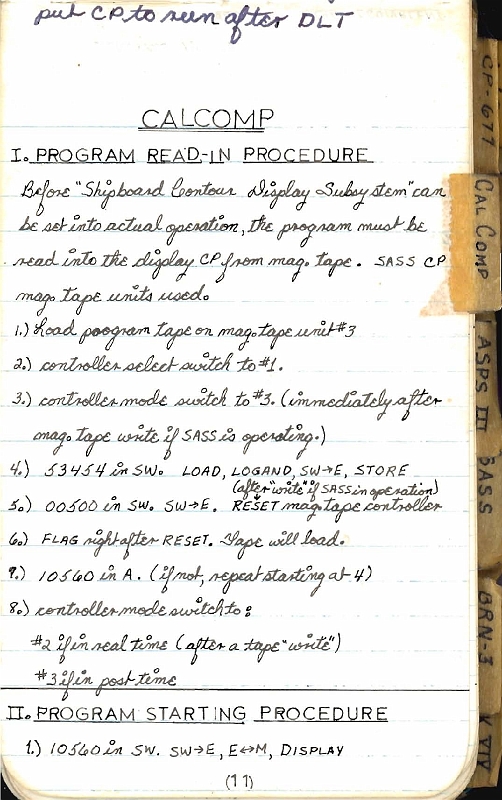 put CP to run after DLT
CALCOMP
I. PROGRAM READ-IN PROCEDURE
Before "Shipboard Contour Display Subsystem" can
be set into actual operation, the program must be
read into the display CP from mag. tape. SASS CP
mag. tape units used.
1.) Load poogram tape on mag. tape unit #3
2.) controller select switch to #1.
3.) controller mode switch to #3. (immediately after
mag. tape write if SASS is operating.)
4.) 53454 in SW. LOAD, LOGAND, SW→E, STORE
(after "write" if SASS in operation)
5.) 00500 in SW. SW→E. RESET mag. tape controller
6.) FLAG right after RESET. Tape will load.
7.) 10560 in A. (if not, repeat starting at 4)
8.) controller mode switch to:
#2 if in real time (after a tape "write")
#3 if in post time
II. PROGRAM STARTING PROCEDURE
1.) 10560 in SW. SW→E, E↔M, DISPLAY
(11)
CP-677
CAL COMP
ASPS III
BASS
BRN-3
K VIV